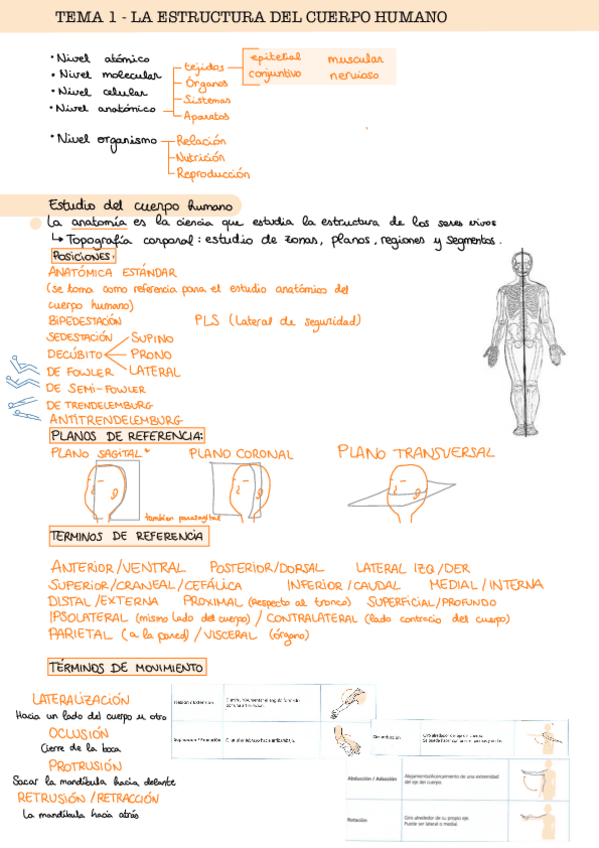 TEMA 1 - LA ESTRUCTURA DEL CUERPO HUMANO
· Nivel atómico
· Nivel molecular
· Nivel celular
· Nivel anatómico
tejidos
epitelial muscular
conjuntivo nervioso
Órganos
Sistemas
Aparatos
· Nivel organismo
Relación
Nutrición
Reproducción
Estudio del cuerpo humano
La anatomía es la ciencia que estudia la estructura de los seres vivos
↳ Topografía corporal: estudio de zonas, planos, regiones y segmentos.
POSICIONES:
ANATÓMICA ESTÁNDAR
(se toma como referencia para el estudio anatómico del
cuerpo humano)
BIPEDESTACIÓN PLS (Lateral de seguridad)
SEDESTACIÓN
DECÚBITO
SUPINO
PRONO
LATERAL
DE FOWLER
DE SEMI-FOWLER
DE TRENDELEMBURG
ANTITRENDELEMBURG
PLANOS DE REFERENCIA:
PLANO SAGITAL* PLANO CORONAL PLANO TRANSVERSAL
también parasagital
TERMINOS DE REFERENCIA
ANTERIOR/VENTRAL POSTERIOR/DORSAL LATERAL IZQ/DER
SUPERIOR/CRANEAL/CEFÁLICA INFERIOR/CAUDAL MEDIAL/INTERNA
DISTAL/EXTERNA PROXIMAL (Respecto al tronco) SUPERFICIAL/PROFUNDO
IPSOLATERAL (mismo lado del cuerpo) / CONTRALATERAL (lado contracio del cuerpo)
PARIETAL (a la pared) / VISCERAL (órgano)
TÉRMINOS DE MOVIMIENTO
LATERALIZACIÓN
Hacia un lado del cuerpo u otro
OCLUSIÓN
Cierre de la boca
PROTRUSIÓN
Sacar la mandíbula hacia delante
RETRUSIÓN/RETRACCIÓN
La mandíbula hacia atrás
Abducción / Aducción
Alejamiento/Acercamiento de una extremidad
del eje del cuerpo.
Rotación
Giro alrededor de su propio eje.
Puede ser lateral o medial.